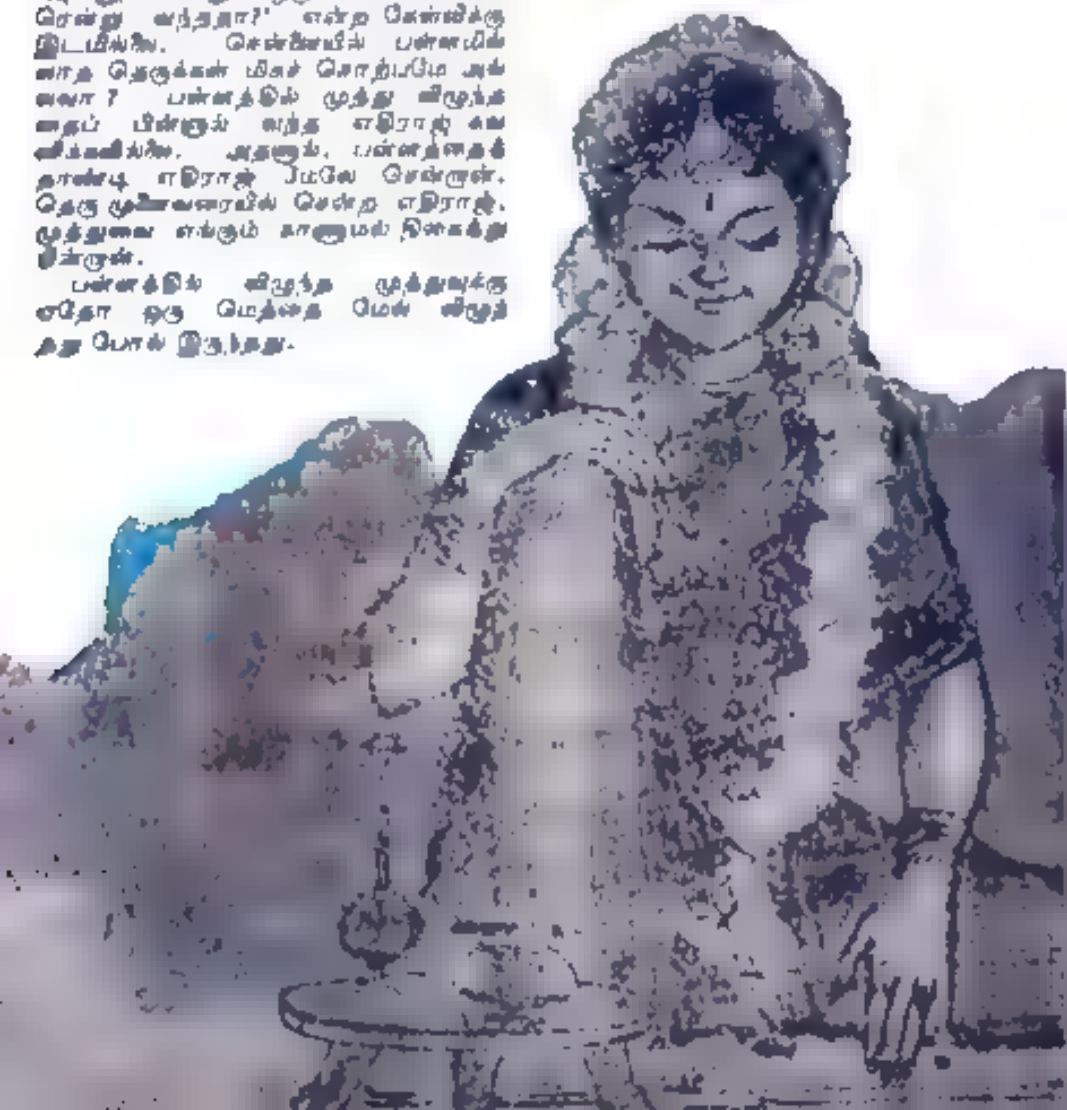 சென்று வந்ததா?" என்ற கேள்விக்கு
இடமில்லை. சென்னையில் பள்ளமில்
லாத தெருக்கள் மிகச் சொற்பமே அல்
லவா? பள்ளத்தில் முத்து விழுந்த
தைப் பின்னால் வந்த எதிராஜ் கவ
னிக்கவில்லை. அதனால், பள்ளத்தைத்
தாண்டி எதிராஜ் மேலே சென்றான்.
தெரு முனைவரையில் சென்ற எதிராஜ்,
முத்துவை எங்கும் காணாமல் திகைத்து
நின்றான்.
பள்ளத்தில் விழுந்த முத்துவுக்கு
ஏதோ ஒரு மெத்தை மேல் விழுந்
தது போல் இருந்தது.